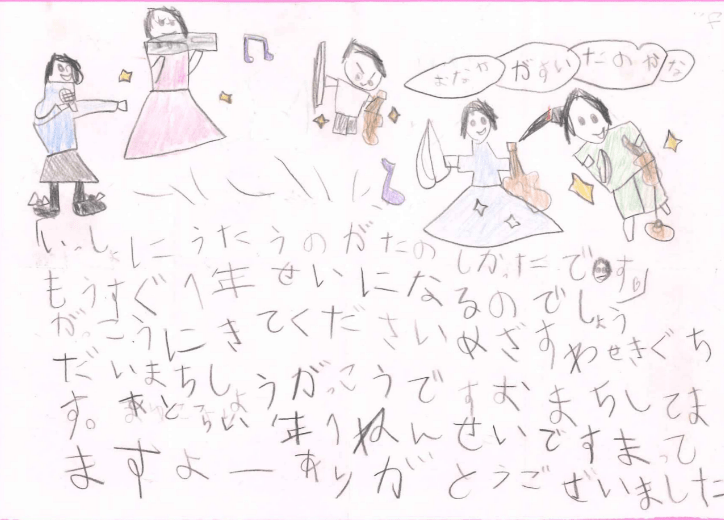 おなかがすいたのかな
「いっしょにうたうのがたのしかったです」
もうすぐ1年せいになるのでしょう
がっこうにきてくださいめざすわせきぐち
だいまちしょうがっこうですおまちしてま
す。あと 1年1ねんせいですまって
ますよーありがとうございました